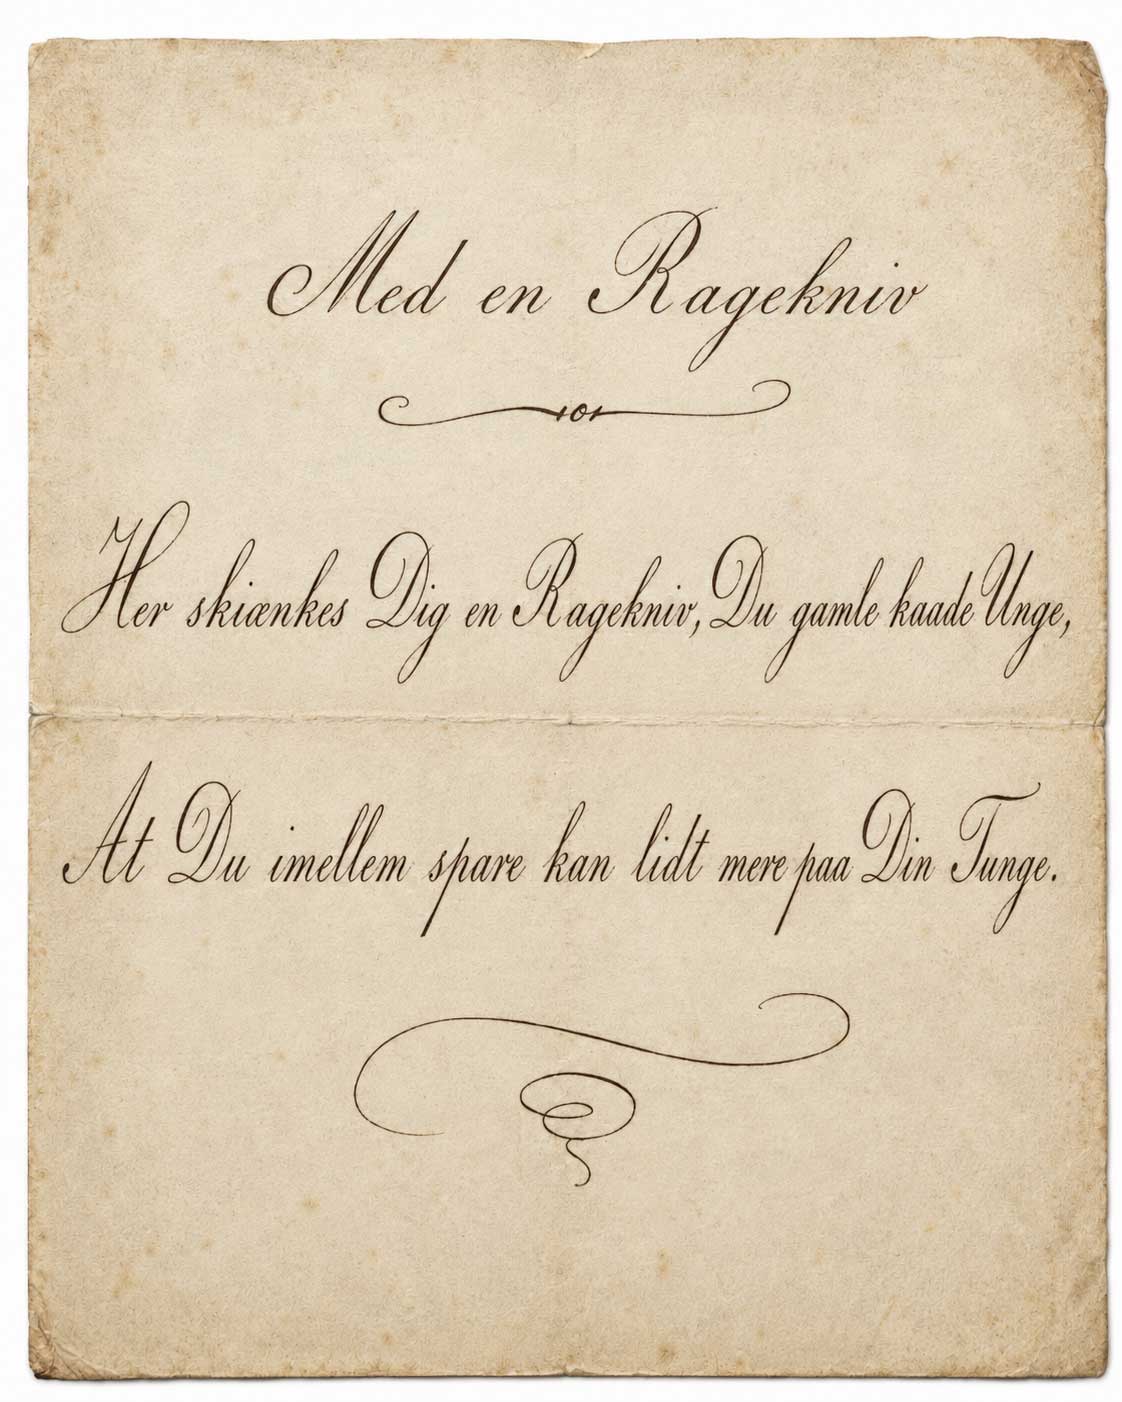 Med en Ragekniv
Her skiænkes Dig en Ragekniv, Du gamle kaade Unge,
At Du imellem spare kan lidt mere paa Din Tunge.